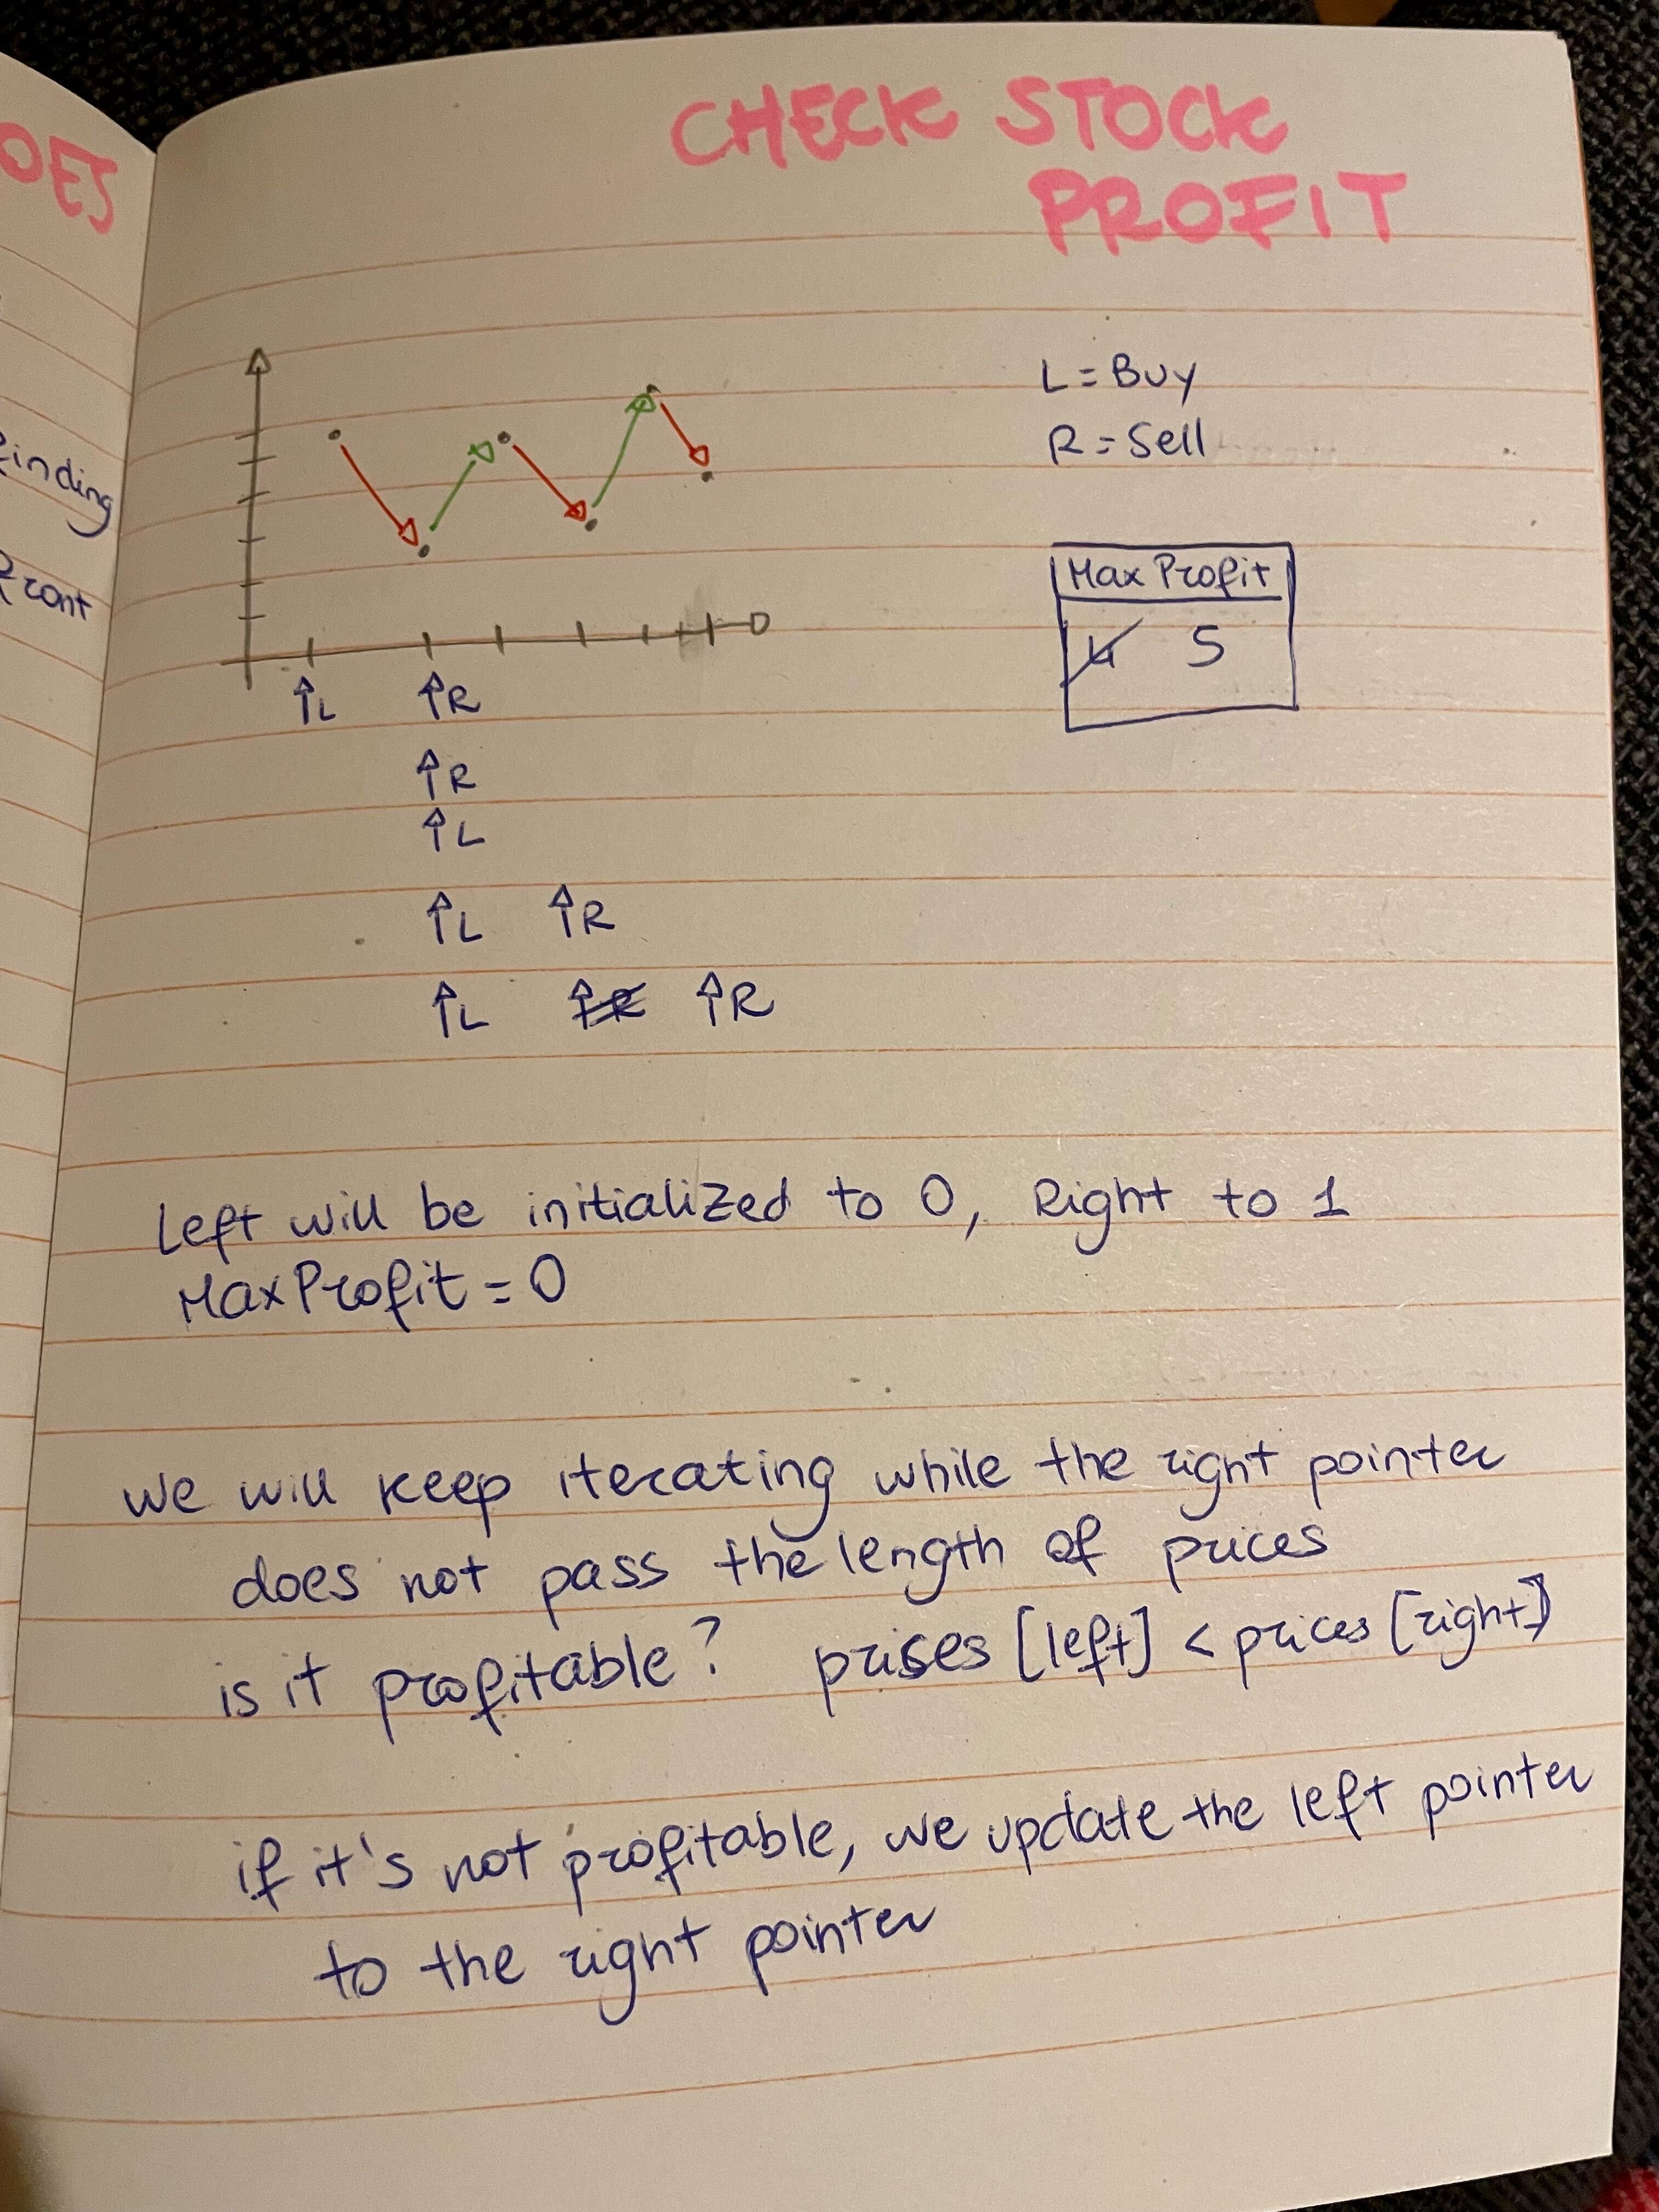 OES
CHECK STOCK
PROFIT
L = Buy
R = Sell
finding
front
Max Profit
4 5
↑L ↑R
↑R
↑L
↑L ↑R
↑L ↑R ↑R
Left will be initialized to 0, Right to 1
MaxProfit = 0
we will keep iterating while the right pointer
does not pass the length of prices
is it profitable? prises [left] < prices [right]
if it's not profitable, we update the left pointer
to the right pointer